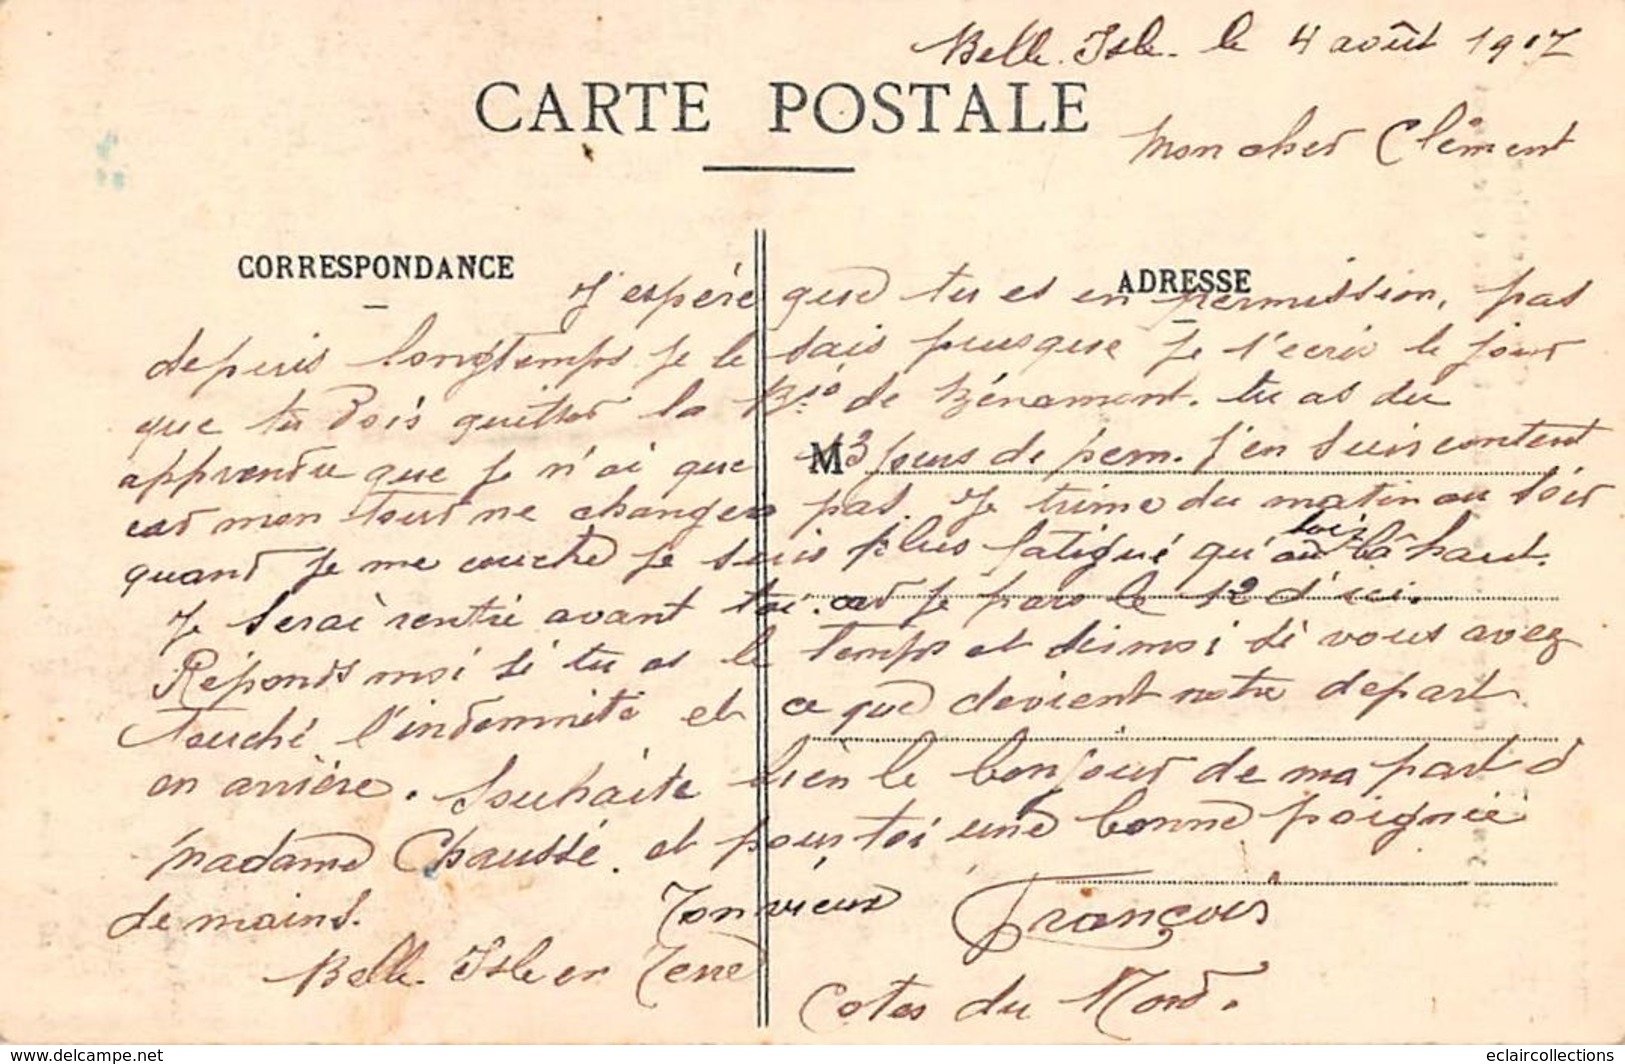 Belle-Isle. le 4 août 1917
CARTE POSTALE
Mon cher Clément
CORRESPONDANCE
ADRESSE
J'espère que tu es en permission, pas
depuis longtemps je le sais puisque je t'ecris le jour
que tu dois quitter la Bie de Bénamont. tu as du
apprendre que je n'ai que 13 jours de perm. j'en suis content
M
car mon tour ne changera pas. Je trime du matin au soir
quand je me couche je suis plus fatigué qu'au là haut.
Je serai rentré avant toi. car je pars le 12 d'ici.
Réponds moi si tu as le temps et dis moi si vous avez
touché l'indemnité et ce que devient notre depart
en arrière. Souhaite bien le bonjour de ma part à
madame Chaussé. et pour toi une bonne poignée
de mains. Ton vieux François
Belle-Isle en Terre
Cotes du Nord.
www.delcampe.net
eclaircollections